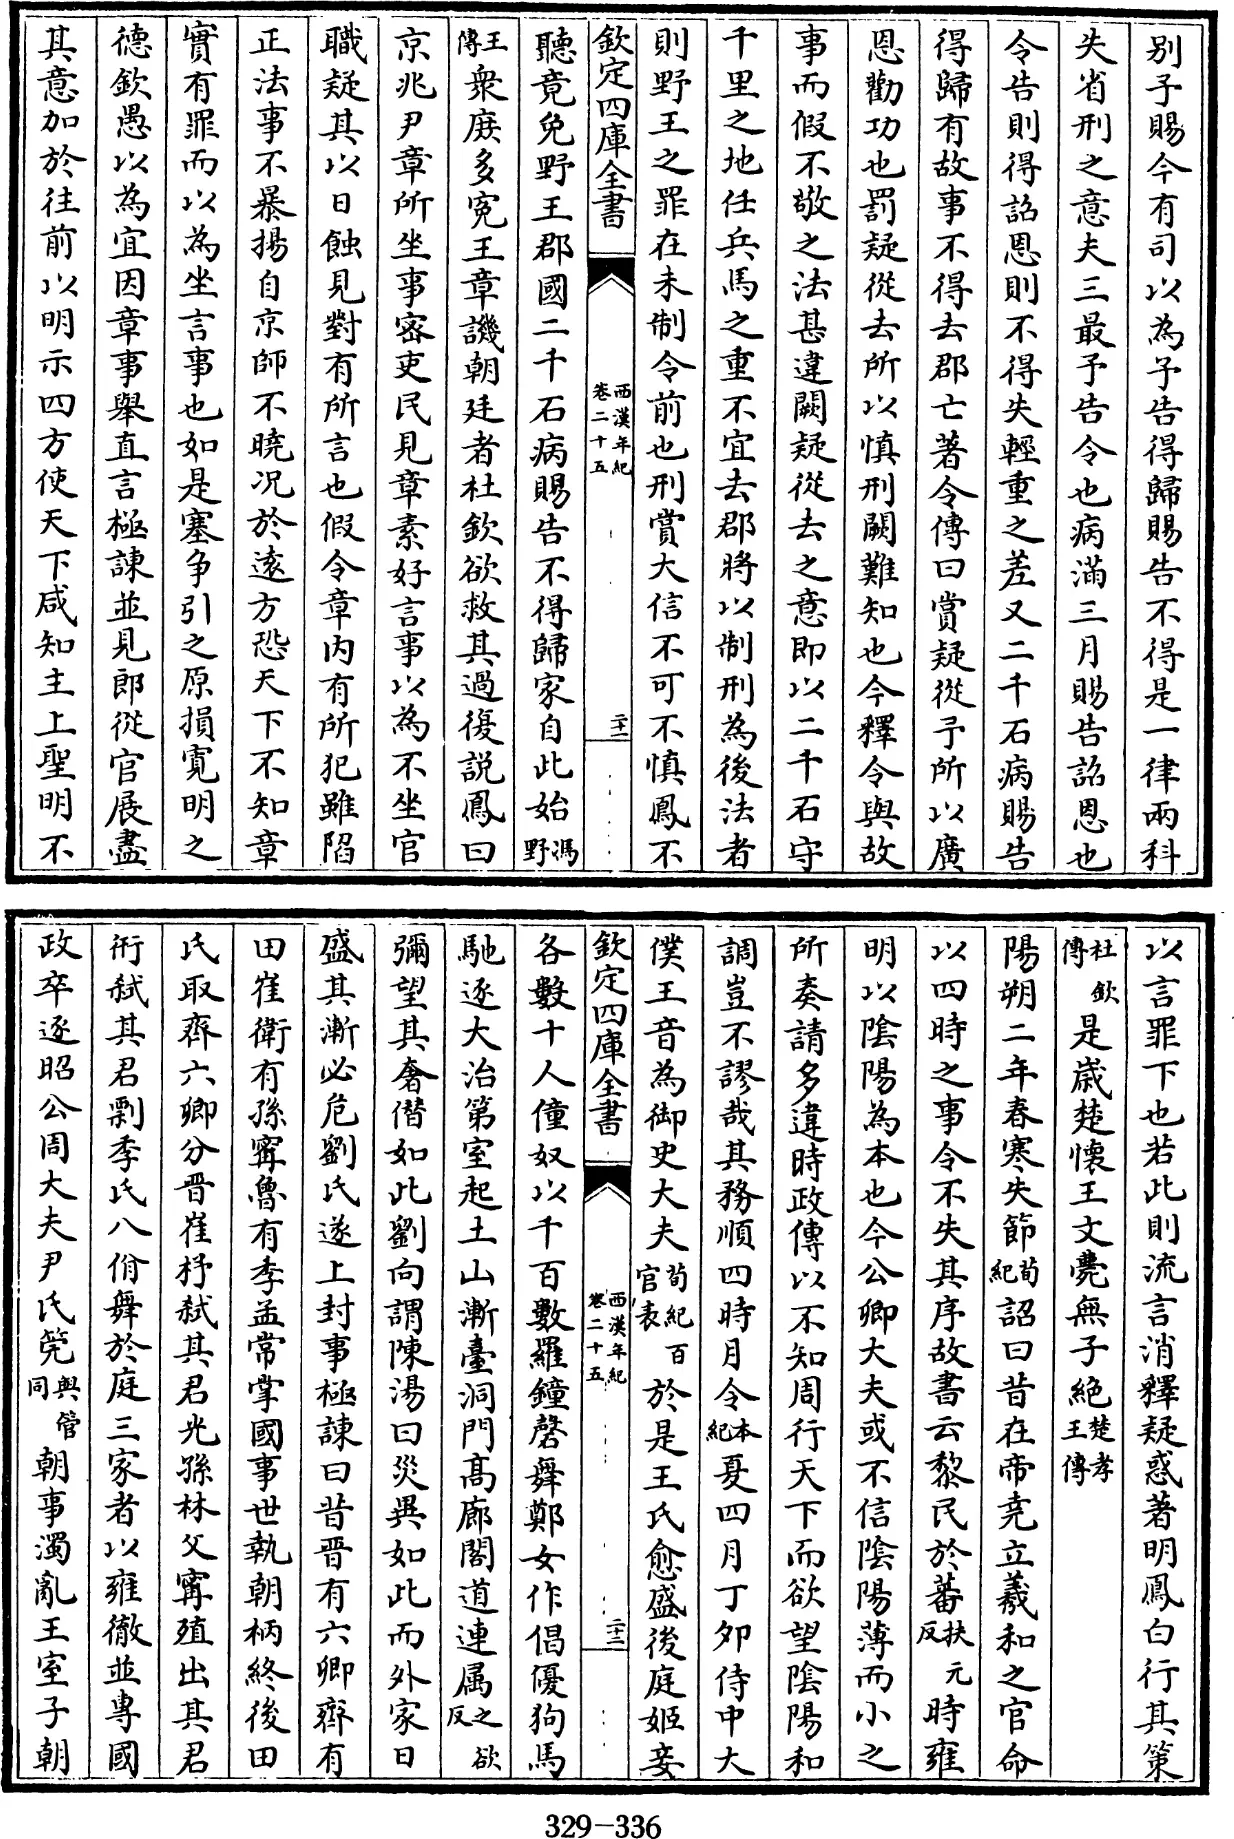 别子賜今有司以為予告得歸賜告不得是一律兩科
失省刑之意夫三最予告令也病滿三月賜告詔恩也
令告則得詔恩則不得失輕重之差又二千石病賜告
得歸有故事不得去郡亡著令傳曰賞疑從予所以廣
恩勸功也罰疑從去所以慎刑闕難知也今釋令與故
事而假不敬之法甚違闕疑從去之意即以二千石守
千里之地任兵馬之重不宜去郡將以制刑為後法者
則野王之罪在未制令前也刑賞大信不可不慎鳳不
欽定四庫全書 西漢年紀 卷二十五 二十二
聽竟免野王郡國二千石病賜告不得歸家自此始馮野
王傳衆庶多寃王章譏朝廷者杜欽欲救其過復説鳳曰
京兆尹章所坐事密吏民見章素好言事以為不坐官
職疑其以日蝕見對有所言也假令章内有所犯雖陷
正法事不暴揚自京師不曉况於逺方恐天下不知章
實有罪而以為坐言事也如是塞争引之原損寛明之
德欽愚以為宜因章事舉直言極諌並見郎從官展盡
其意加於往前以明示四方使天下咸知主上聖明不
以言罪下也若此則流言消釋疑惑著明鳳白行其策
杜欽傳是歳楚懷王文薨無子絶楚孝王傳
陽朔二年春寒失節荀紀詔曰昔在帝堯立羲和之官命
以四時之事令不失其序故書云黎民於蕃扶元反時雍
明以陰陽為本也今公卿大夫或不信陰陽薄而小之
所奏請多違時政傳以不知周行天下而欲望陰陽和
調豈不謬哉其務順四時月令本紀夏四月丁夘侍中大
僕王音為御史大夫荀紀百官表於是王氏愈盛後庭姬妾
欽定四庫全書 西漢年紀 卷二十五 二十三
各數十人僮奴以千百數羅鐘磬舞鄭女作倡優狗馬
馳逐大治第室起土山漸臺洞門髙廊閣道連属之欲反
彌望其奢僣如此劉向謂陳湯曰災異如此而外家日
盛其漸必危劉氏遂上封事極諌曰昔晋有六卿齊有
田崔衛有孫寗魯有季孟常掌國事世執朝柄終後田
氏取齊六卿分晋崔杼弑其君光孫林父寗殖出其君
衎弑其君剽季氏八佾舞於庭三家者以雍徹並専國
政卒逐昭公周大夫尹氏筦與管同朝事濁亂王室子朝
329-336